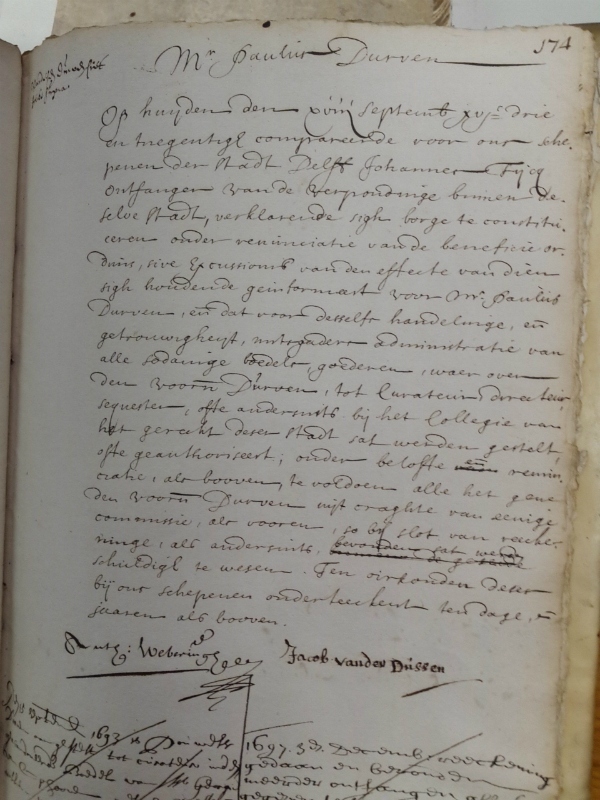 174
Mr. Paulus Durven
Op huijden den xviij septemb xvjc drie
en tnegentigh compareerde voor ons sche-
penen der stadt Delff Johannes
ontfanger van de verpondinge binnen de-
selve stadt, verklarende sigh borge te constitu-
eeren onder renunciatie van de beneficie or-
dinis, sive Excussionis van den effecte van dien
sigh houdende geinformeert voor Mr. Paulus
Durven, en dat voor desselfs handelinge, en
getrouwigheijt, mitsgaders administratie van
alle sodanige boedels, goederen, waer over
den voorn Durven, tot Curateur, directeur,
sequester, ofte andersints bij het Collegie van
het gerecht deser stadt sal werden gestelt,
ofte geauthoriseert; onder belofte en renun-
ciatie, als booven, te voldoen alle het gene
den voorn Durven uijt craghte van eenige
commissie, als vooren, so bij slot van reeke-
ninge, als andersints, bevonden sal werden
schuldigh te wesen. Ten oirkonden deser
bij ons schepenen onderteeckent ten dage, en
jaaren als booven.
Jacob vander Dussen
1693
1697. 3 Decemb. reeckening
gedaen en bevonden
meerder ontfangen